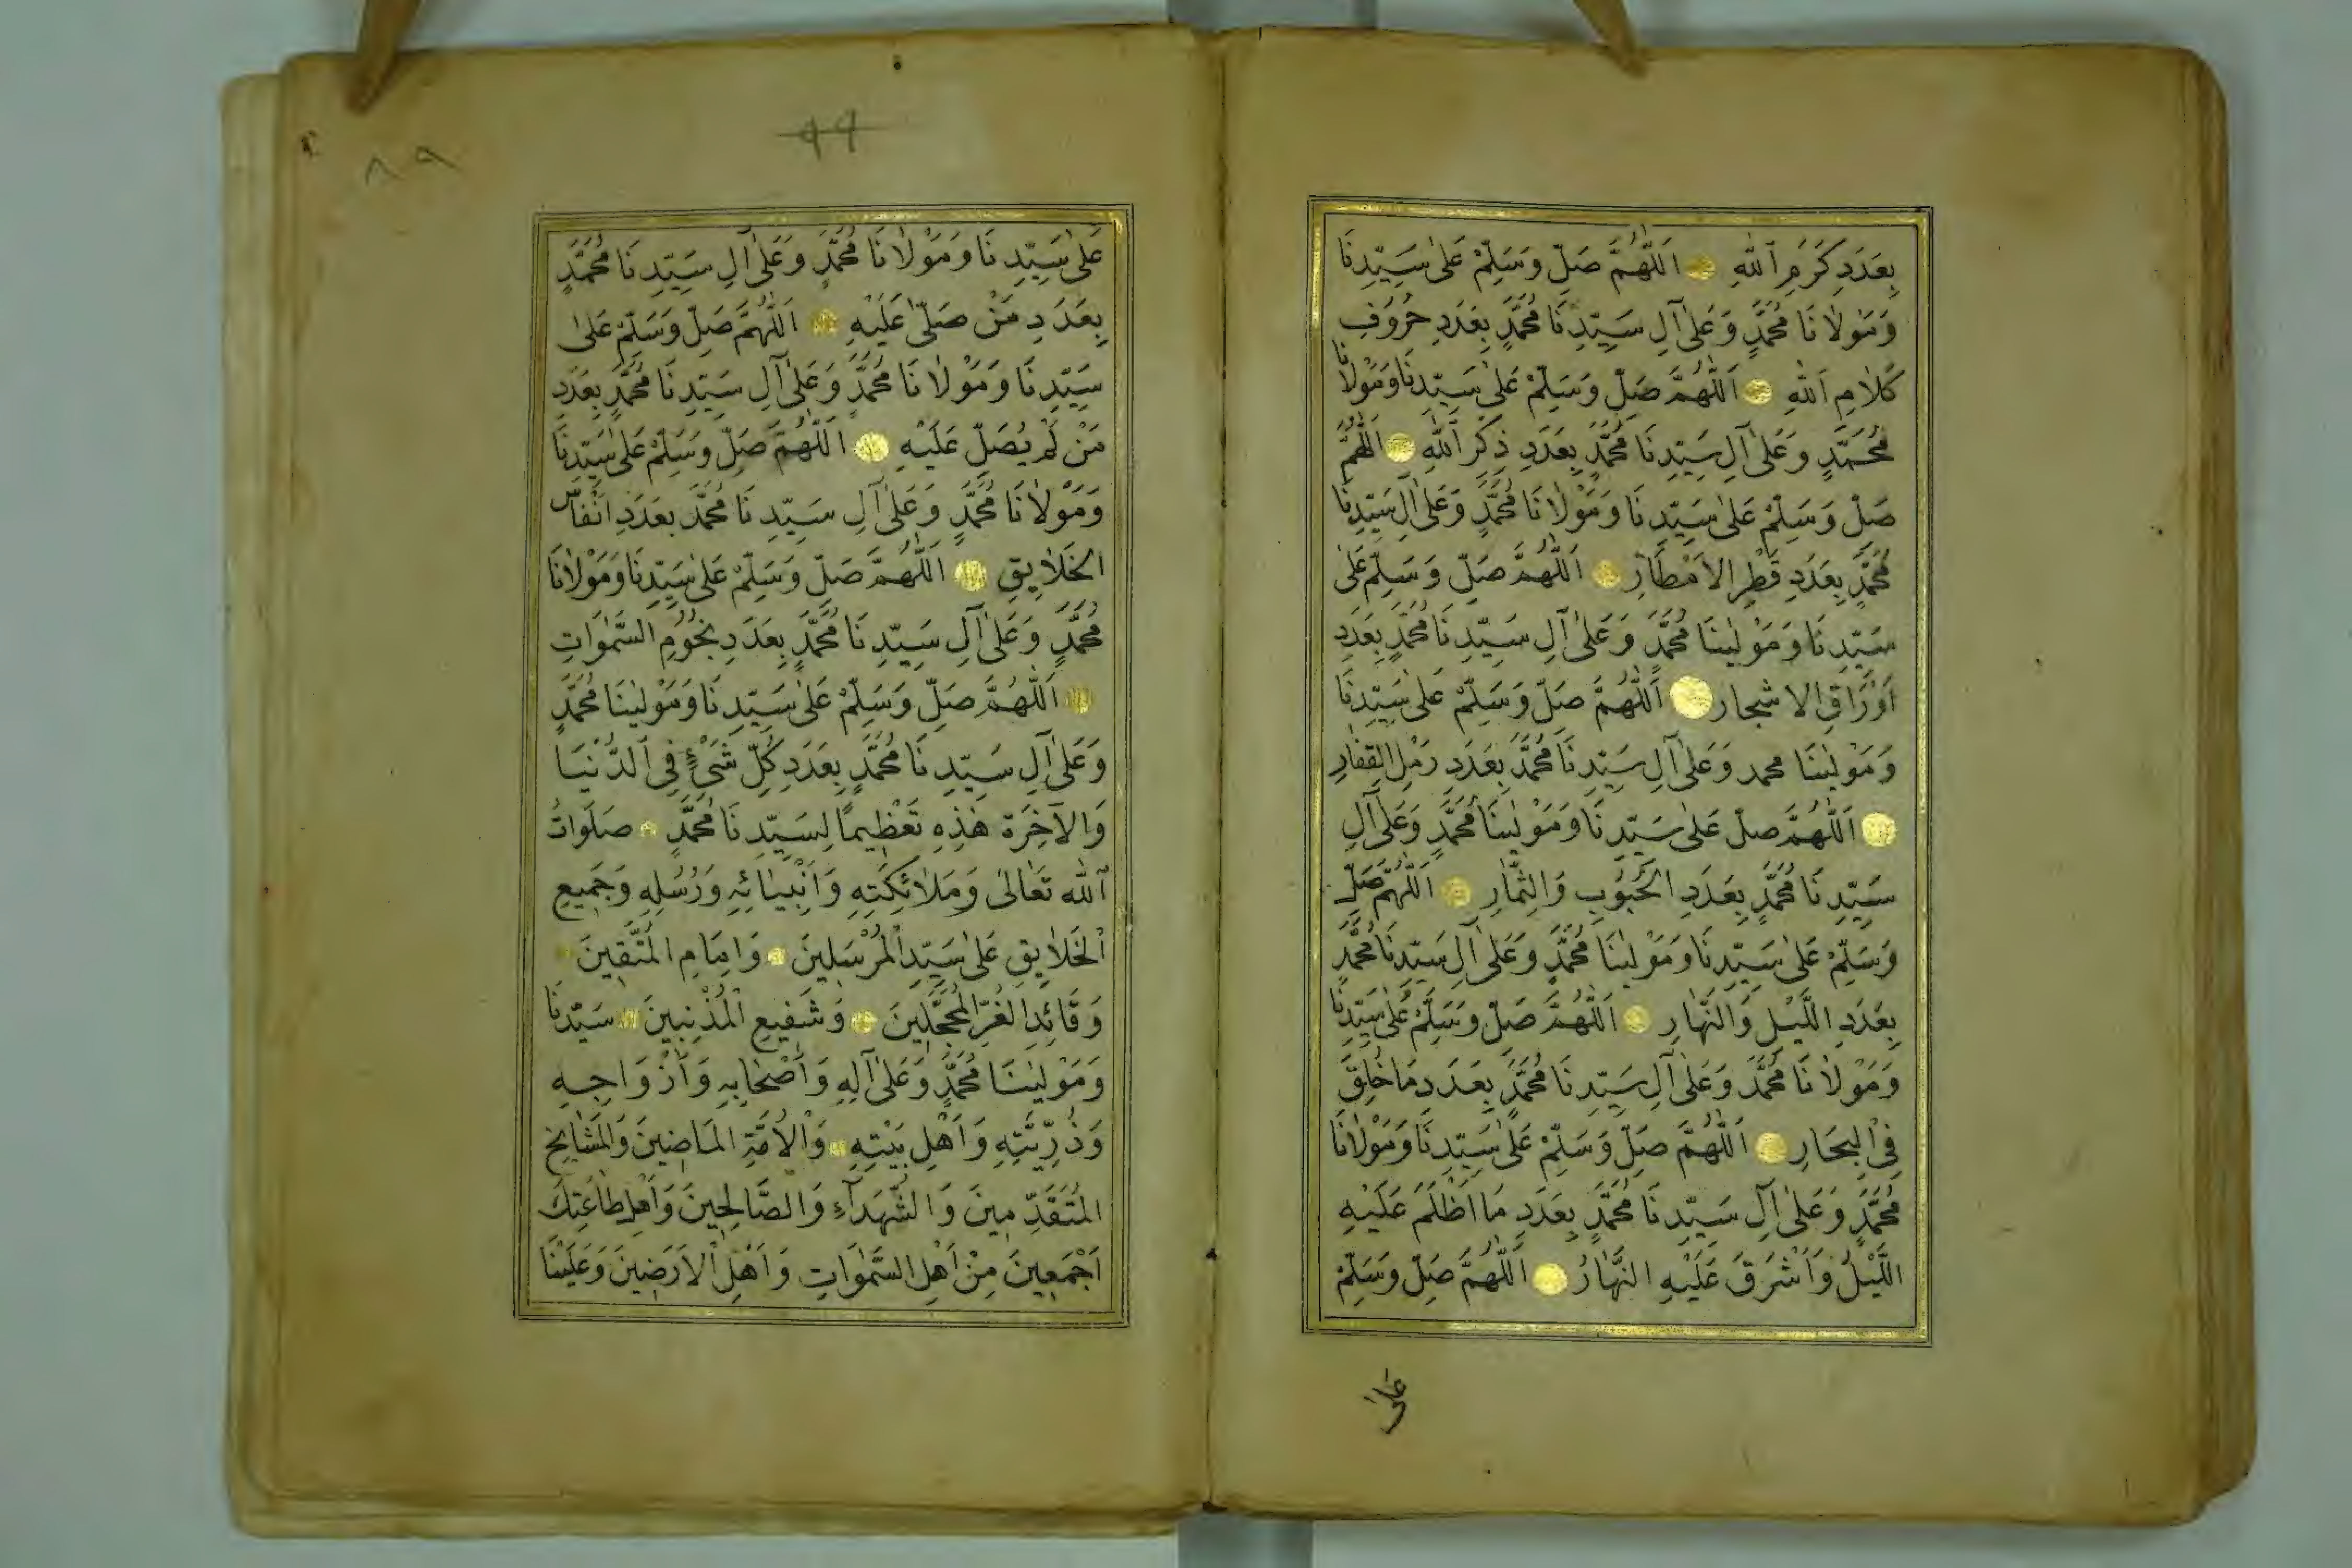 بِعَدَدِ كَرَمِ اللّٰهِ اَللّٰهُمَّ صَلِّ وَسَلِّمْ عَلٰى سَيِّدِنَا
وَمَوْلَانَا مُحَمَّدٍ وَعَلٰى آلِ سَيِّدِنَا مُحَمَّدٍ بِعَدَدِ حُرُوفِ
كَلَامِ اللّٰهِ اَللّٰهُمَّ صَلِّ وَسَلِّمْ عَلٰى سَيِّدِنَا وَمَوْلَانَا
مُحَمَّدٍ وَعَلٰى آلِ سَيِّدِنَا مُحَمَّدٍ بِعَدَدِ ذِكْرِ اللّٰهِ اَللّٰهُمَّ
صَلِّ وَسَلِّمْ عَلٰى سَيِّدِنَا وَمَوْلَانَا مُحَمَّدٍ وَعَلٰى آلِ سَيِّدِنَا
مُحَمَّدٍ بِعَدَدِ قَطْرِ الْاَمْطَارِ اَللّٰهُمَّ صَلِّ وَسَلِّمْ عَلٰى
سَيِّدِنَا وَمَوْلٰينَا مُحَمَّدٍ وَعَلٰى آلِ سَيِّدِنَا مُحَمَّدٍ بِعَدَدِ
اَوْرَاقِ الاشجار اَللّٰهُمَّ صَلِّ وَسَلِّمْ عَلٰى سَيِّدِنَا
وَمَوْلٰينَا محمد وَعَلٰى آلِ سَيِّدِنَا مُحَمَّدٍ بِعَدَدِ رَمْلِ الْقِفَارِ
اَللّٰهُمَّ صلّ عَلٰى سَيِّدِنَا وَمَوْلٰينَا مُحَمَّدٍ وَعَلٰى آلِ
سَيِّدِنَا مُحَمَّدٍ بِعَدَدِ الْحُبُوبِ وَالثِّمَارِ اَللّٰهُمَّ صَلِّ
وَسَلِّمْ عَلٰى سَيِّدِنَا وَمَوْلٰينَا مُحَمَّدٍ وَعَلٰى آلِ سَيِّدِنَا مُحَمَّدٍ
بِعَدَدِ اللَّيْلِ وَالنَّهَارِ اَللّٰهُمَّ صَلِّ وَسَلِّمْ عَلٰى سَيِّدِنَا
وَمَوْلَانَا مُحَمَّدٍ وَعَلٰى آلِ سَيِّدِنَا مُحَمَّدٍ بِعَدَدِ مَا خُلِقَ
فِى الْبِحَارِ اَللّٰهُمَّ صَلِّ وَسَلِّمْ عَلٰى سَيِّدِنَا وَمَوْلَانَا
مُحَمَّدٍ وَعَلٰى آلِ سَيِّدِنَا مُحَمَّدٍ بِعَدَدِ مَا اَظْلَمَ عَلَيْهِ
اللَّيْلُ وَاَشْرَقَ عَلَيْهِ النَّهَارُ اَللّٰهُمَّ صَلِّ وَسَلِّمْ
عَلٰى
٩٩
٨٩
عَلٰى سَيِّدِنَا وَمَوْلَانَا مُحَمَّدٍ وَعَلٰى آلِ سَيِّدِنَا مُحَمَّدٍ
بِعَدَدِ مَنْ صَلّٰى عَلَيْهِ اَللّٰهُمَّ صَلِّ وَسَلِّمْ عَلٰى
سَيِّدِنَا وَمَوْلَانَا مُحَمَّدٍ وَعَلٰى آلِ سَيِّدِنَا مُحَمَّدٍ بِعَدَدِ
مَنْ لَمْ يُصَلِّ عَلَيْهِ اَللّٰهُمَّ صَلِّ وَسَلِّمْ عَلٰى سَيِّدِنَا
وَمَوْلَانَا مُحَمَّدٍ وَعَلٰى آلِ سَيِّدِنَا مُحَمَّدٍ بِعَدَدِ اَنْفَاسِ
الْخَلَايِقِ اَللّٰهُمَّ صَلِّ وَسَلِّمْ عَلٰى سَيِّدِنَا وَمَوْلَانَا
مُحَمَّدٍ وَعَلٰى آلِ سَيِّدِنَا مُحَمَّدٍ بِعَدَدِ نُجُومِ السَّمٰوَاتِ
اَللّٰهُمَّ صَلِّ وَسَلِّمْ عَلٰى سَيِّدِنَا وَمَوْلٰينَا مُحَمَّدٍ
وَعَلٰى آلِ سَيِّدِنَا مُحَمَّدٍ بِعَدَدِ كُلِّ شَىْءٍ فِى الدُّنْيَا
وَالْآخِرَةِ هٰذِهِ تَعْظِيمًا لِسَيِّدِنَا مُحَمَّدٍ صَلَوَاتُ
اللّٰه تَعَالٰى وَمَلَائِكَتِهِ وَاَنْبِيَائِهِ وَرُسُلِهِ وَجَمِيعِ
الْخَلَايِقِ عَلٰى سَيِّدِ الْمُرْسَلِينَ وَاِمَامِ الْمُتَّقِينَ
وَقَائِدِ الْغُرِّ الْمُحَجَّلِينَ وَشَفِيعِ الْمُذْنِبِينَ سَيِّدِنَا
وَمَوْلٰينَا مُحَمَّدٍ وَعَلٰى آلِهِ وَاَصْحَابِهِ وَاَزْوَاجِهِ
وَذُرِّيَّتِهِ وَاَهْلِ بَيْتِهِ وَالْاُمَّةِ الْمَاضِينَ وَالْمَشَايِخِ
الْمُتَقَدِّمِينَ وَالشُّهَدَآءِ وَالصَّالِحِينَ وَاَهْلِ طَاعَتِكَ
اَجْمَعِينَ مِنْ اَهْلِ السَّمٰوَاتِ وَاَهْلِ الْاَرَضِينَ وَعَلَيْنَا